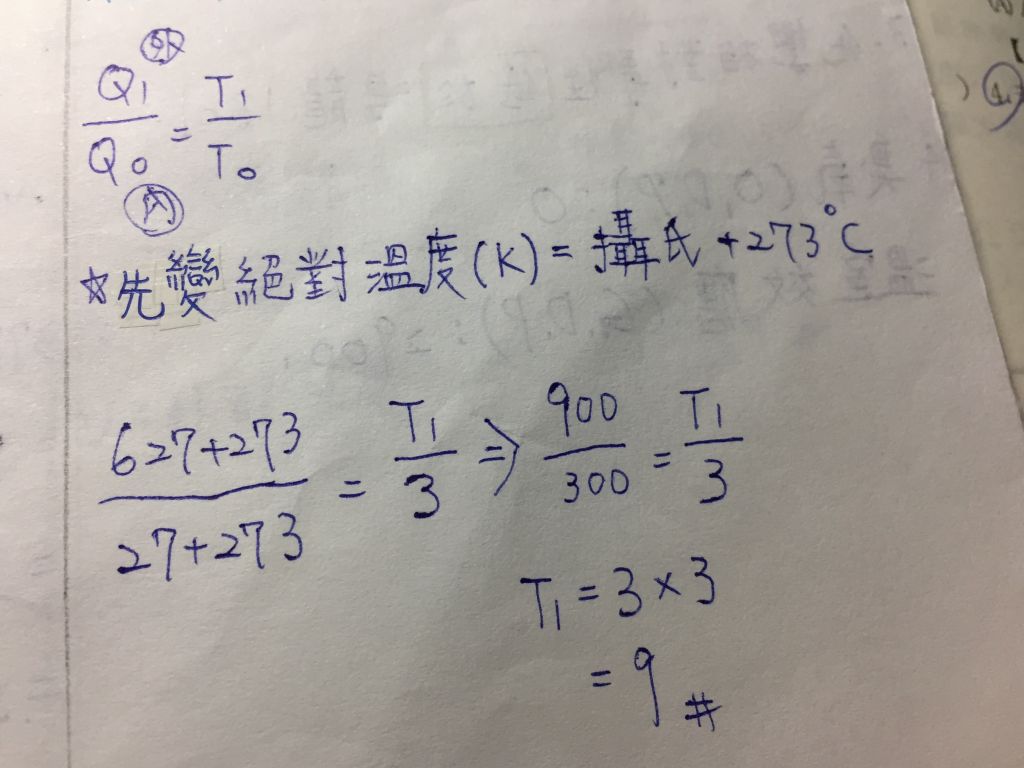 Q₁/Q₀ = T₁/T₀
內
☆先變絕對溫度(K)=攝氏+273°C
(627+273)/(27+273) = T₁/3 ⇒ 900/300 = T₁/3
T₁ = 3×3
= 9 #